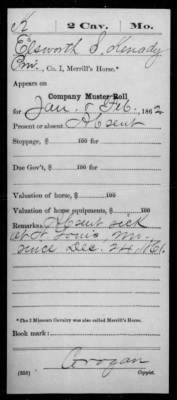 K | 2 Cav. | Mo.
Elsworth S. Kenady
Pvt., Co. I, Merrill's Horse.*
Appears on
Company Muster Roll
for Jan. & Feb., 1862
Present or absent Absent
Stoppage, $ 100 for
Due Gov't, $ 100 for
Valuation of horse, $ 100
Valuation of horse equipments, $ 100
Remarks: Absent sick
at St. Louis, Mo.
since Dec. 24 1861.
*The 2 Missouri Cavalry was also called Merrill's Horse.
Book mark:
Grogan
(358) Copyist.